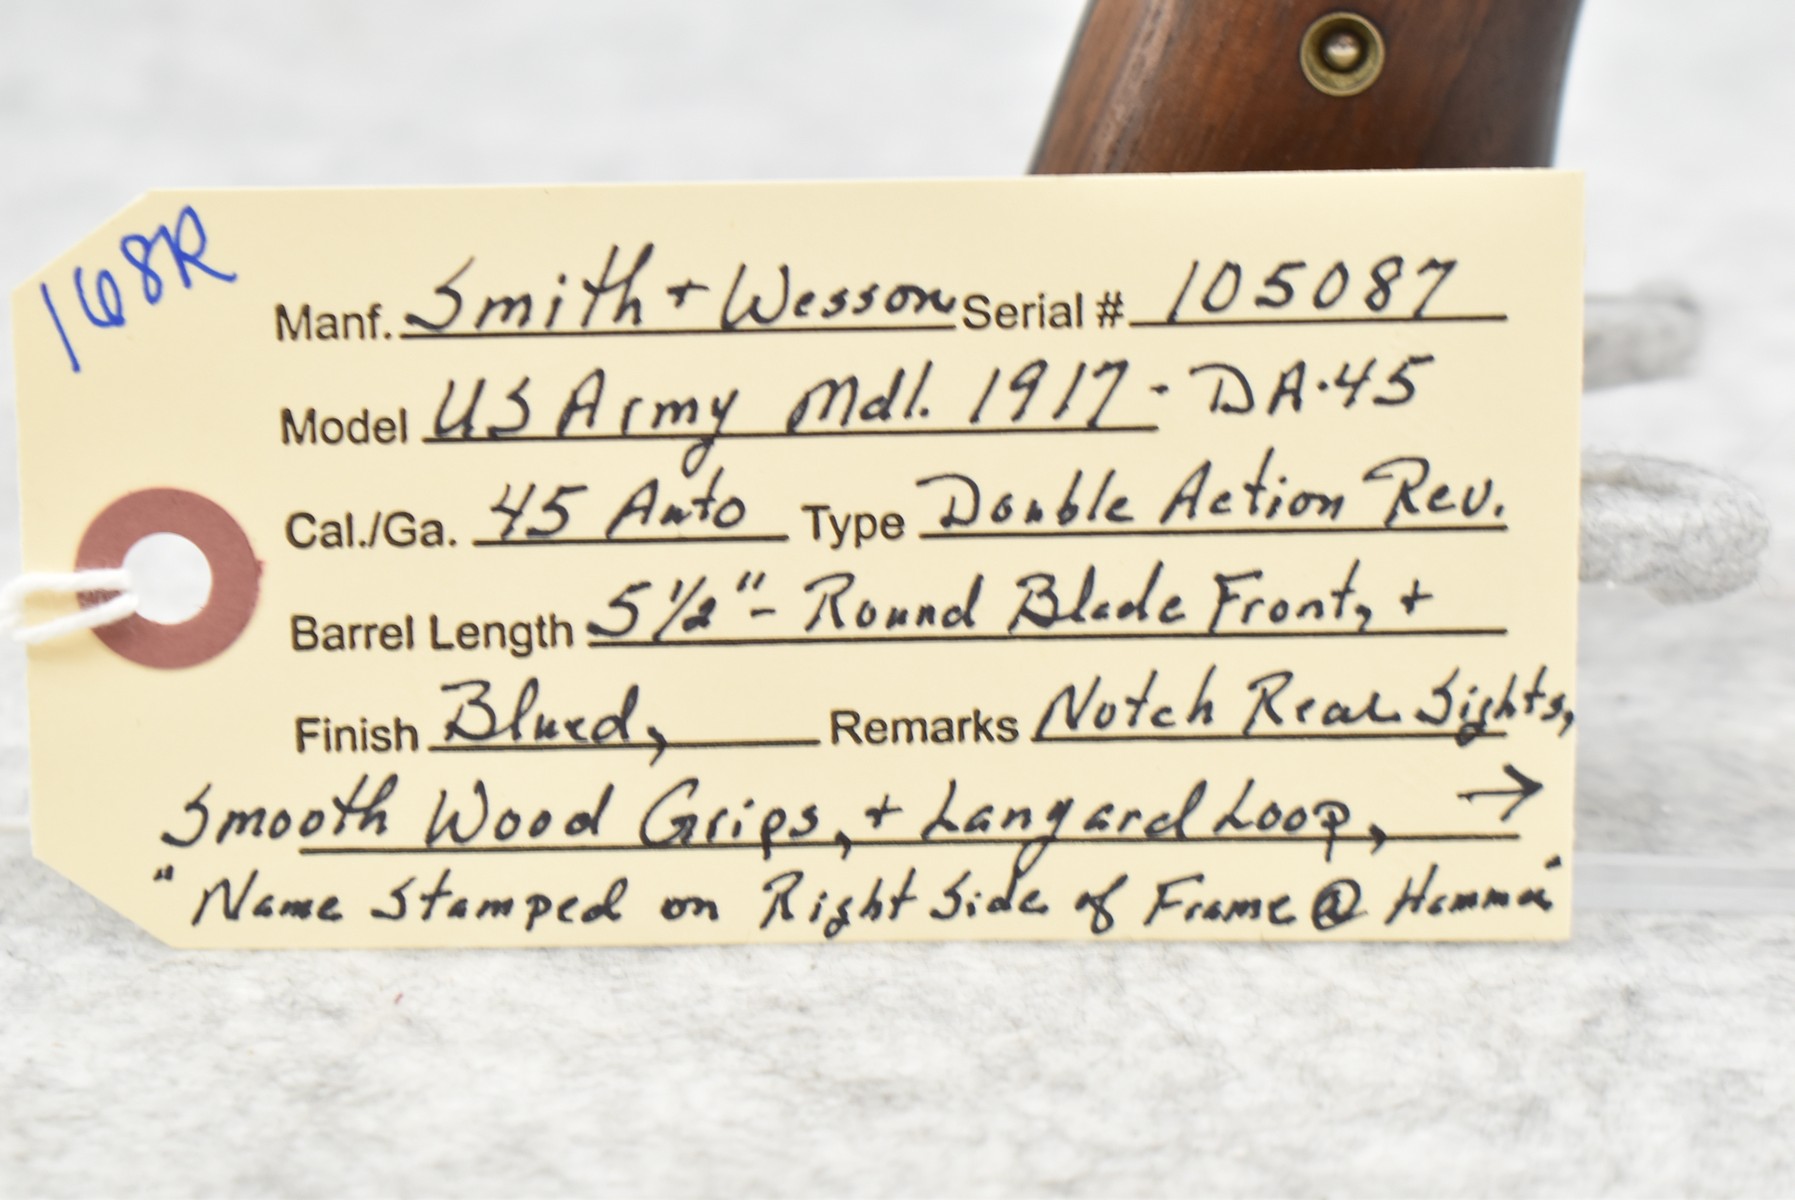 168R
Manf. Smith + Wesson Serial # 105087
Model US Army Mdl. 1917 - DA·45
Cal./Ga. 45 Auto Type Double Action Rev.
Barrel Length 5 1/2" - Round Blade Front, +
Finish Blued, Remarks Notch Rear Sights,
Smooth Wood Grips, + Lanyard Loop, →
"Name Stamped on Right Side of Frame @ Hammer"